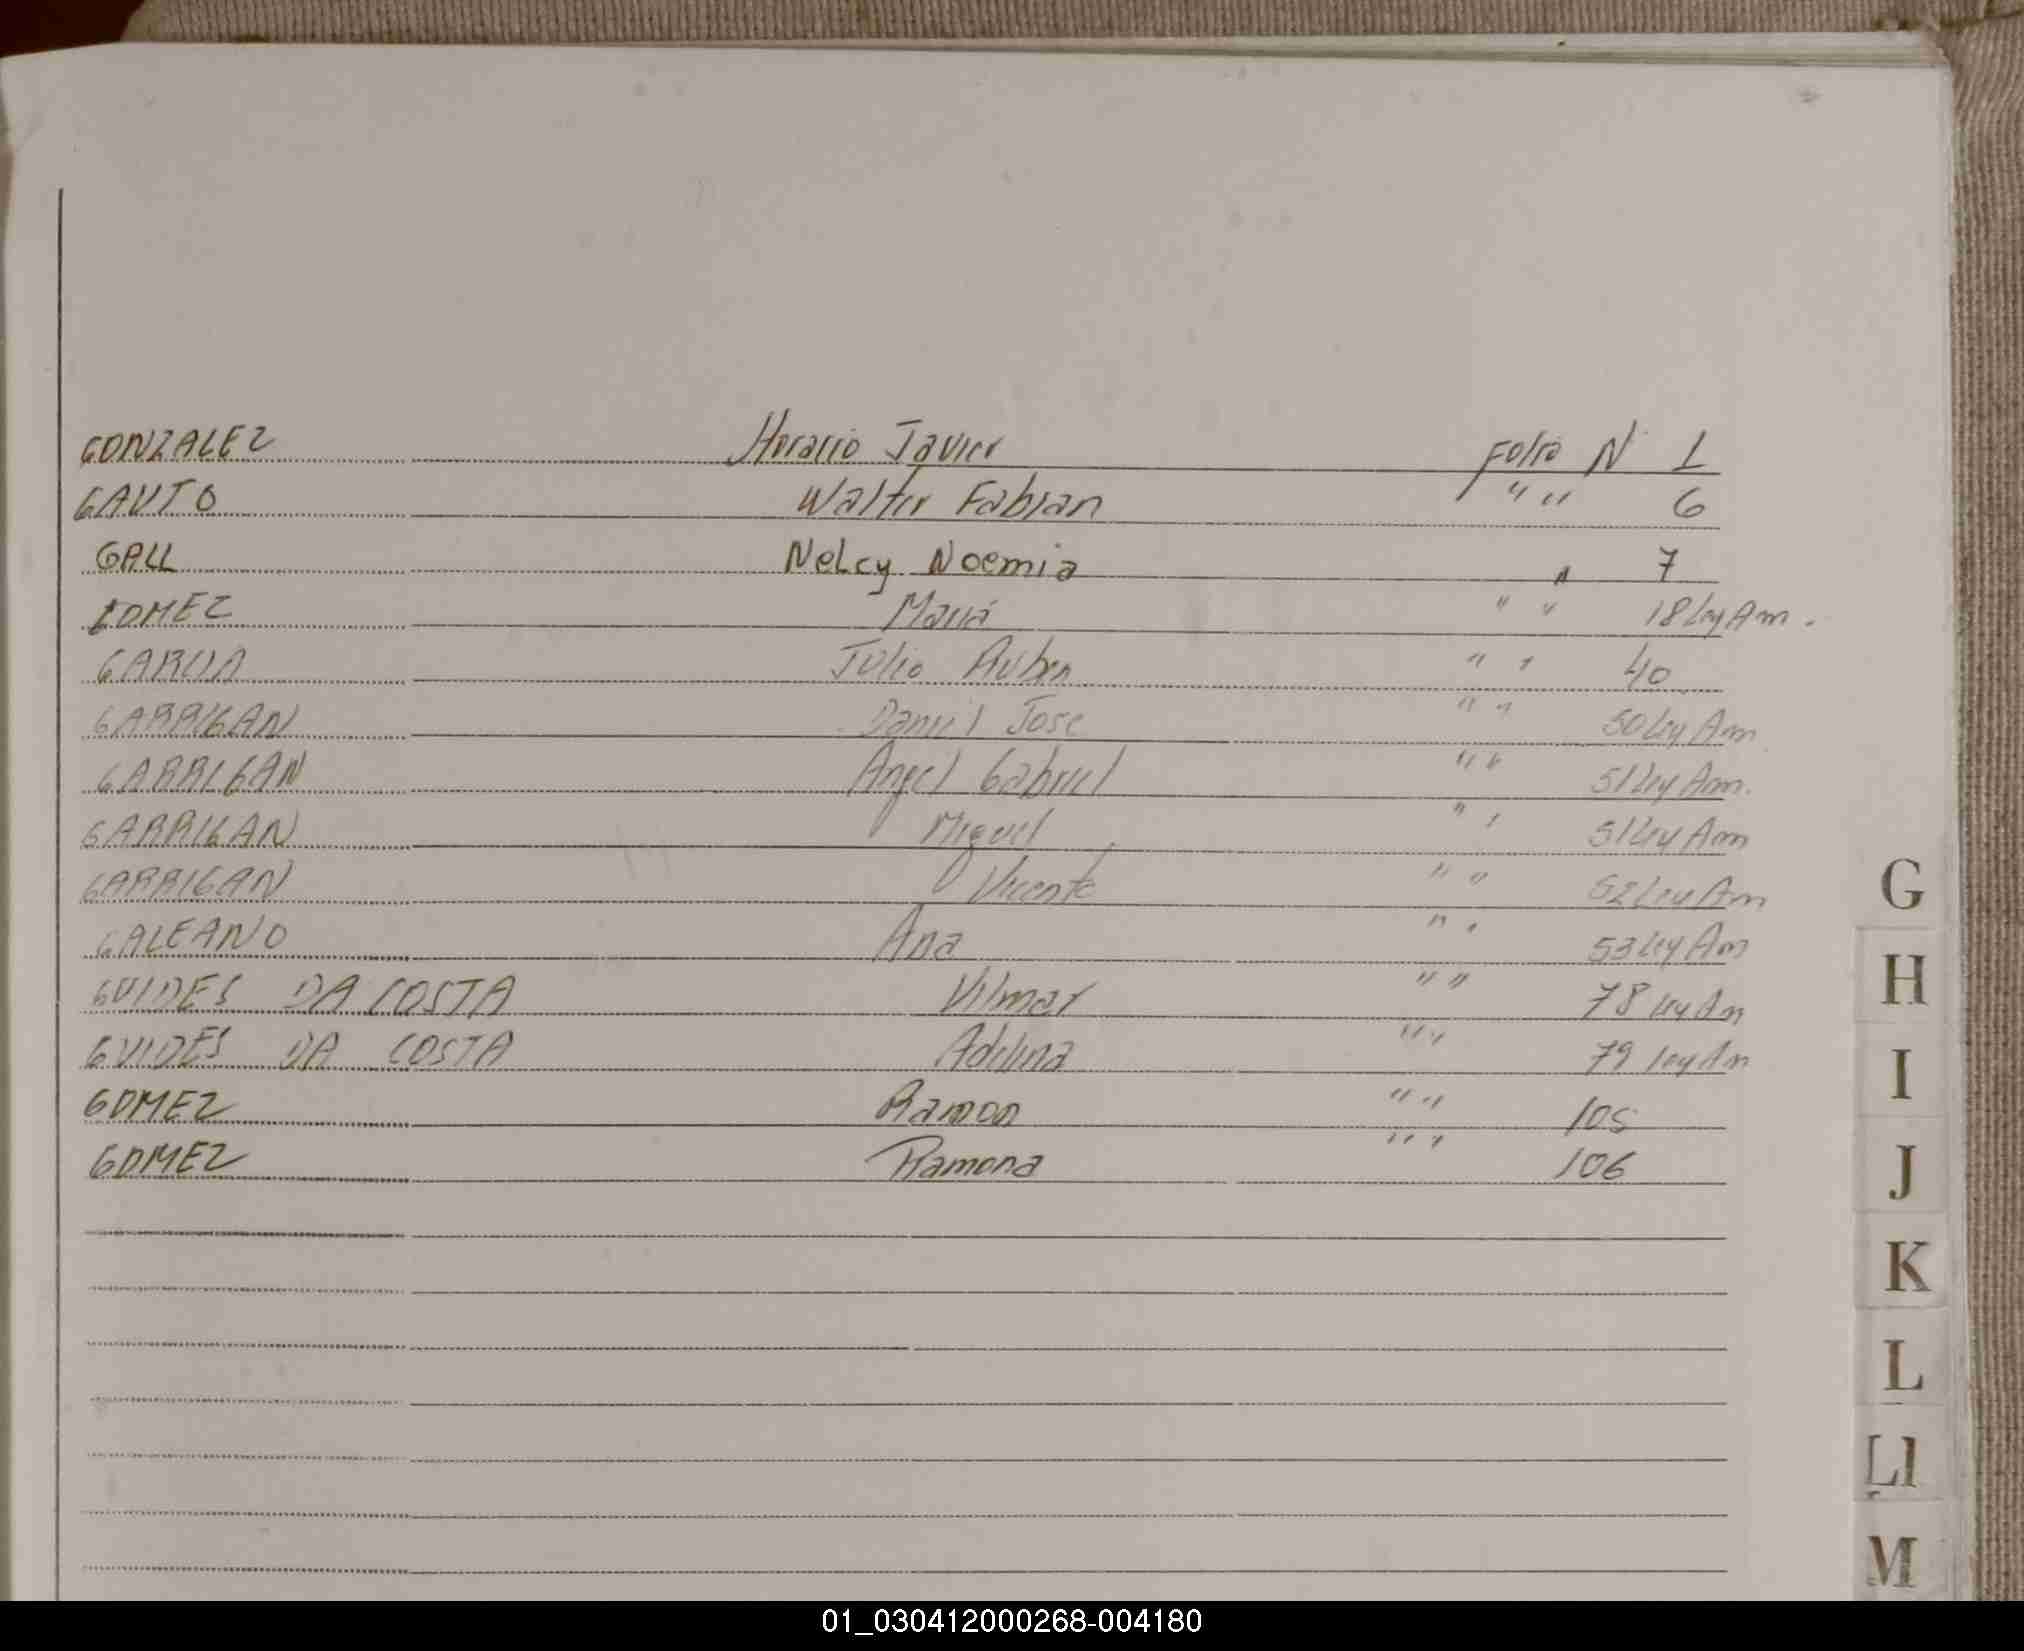 GONZALEZ Horacio Javier Folio N 1
GAUTO Walter Fabian " " 6
GALL Nelcy Noemia " 7
GOMEZ María " " 18 ley Am.
GARCIA Julio Ruben " " 40
GARRIGAN Daniel Jose " " 50 ley Am
GARRIGAN Angel Gabriel " " 51 ley Am.
GARRIGAN Miguel " " 51 ley Am
GARRIGAN Vicente " " 52 ley Am
GALEANO Ana " " 53 ley Am
GUIDES DA COSTA Vilmar " " 78 ley Am
GUIDES DA COSTA Adelina " " 79 ley Am
GOMEZ Ramon " " 105
GOMEZ Ramona " " 106
G
H
I
J
K
L
Ll
M
01_030412000268-004180